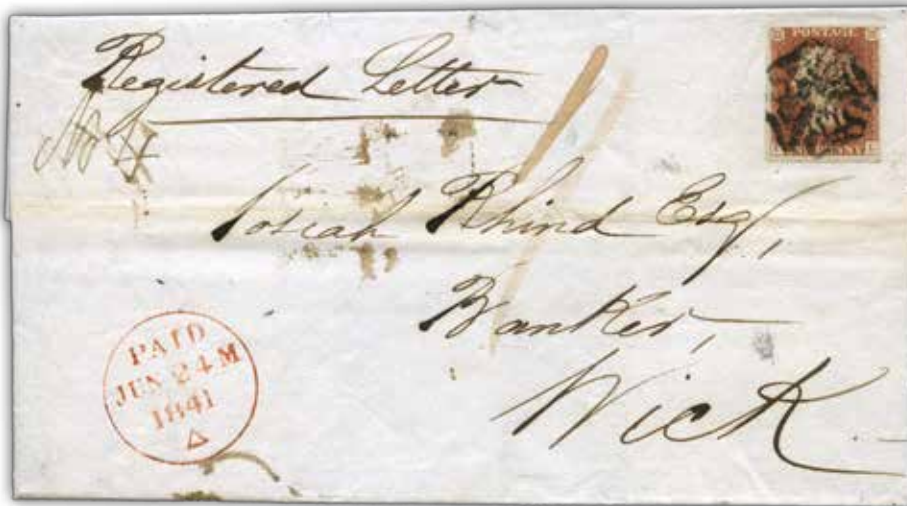 Registered Letter
POSTAGE
No
Josiah Rhind Esq,
Banker,
Wick
PAID
JUN 24 M
1841